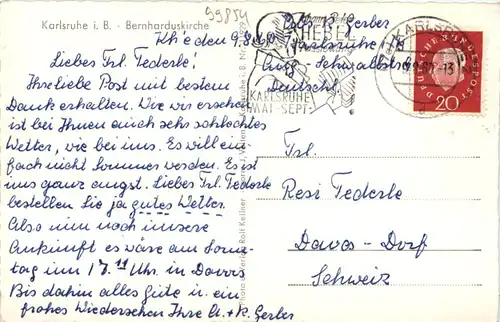 99854
Karlsruhe i. B. - Bernharduskirche
K'he den 9.8.60
Liebes Frl. Tederle!
Ihre liebe Post mit bestem
Dank erhalten. Wie wir ersehen
ist bei Ihnen auch sehr schlechtes
Wetter, wie bei uns. Es will ein-
fach nicht Sommer werden. Es ist
uns ganz angst. Liebes Frl. Tederle
bestellen Sie ja gutes Wetter.
Also nun noch unsere
Ankunft es wäre am Sonn-
tag um 17.11 Uhr in Davos
Bis dahin alles gute u. ein
frohes Wiedersehen Ihre A. + K. Gerber
Gerber
Karlsruhe
Deutschl.
HEBEL
KARLSRUHE
MAI SEPT.
KARLS
DEUTSCHE BUNDESPOST
20
Frl.
Resi Tederle
Davos-Dorf
Schweiz
Rolf Kellner